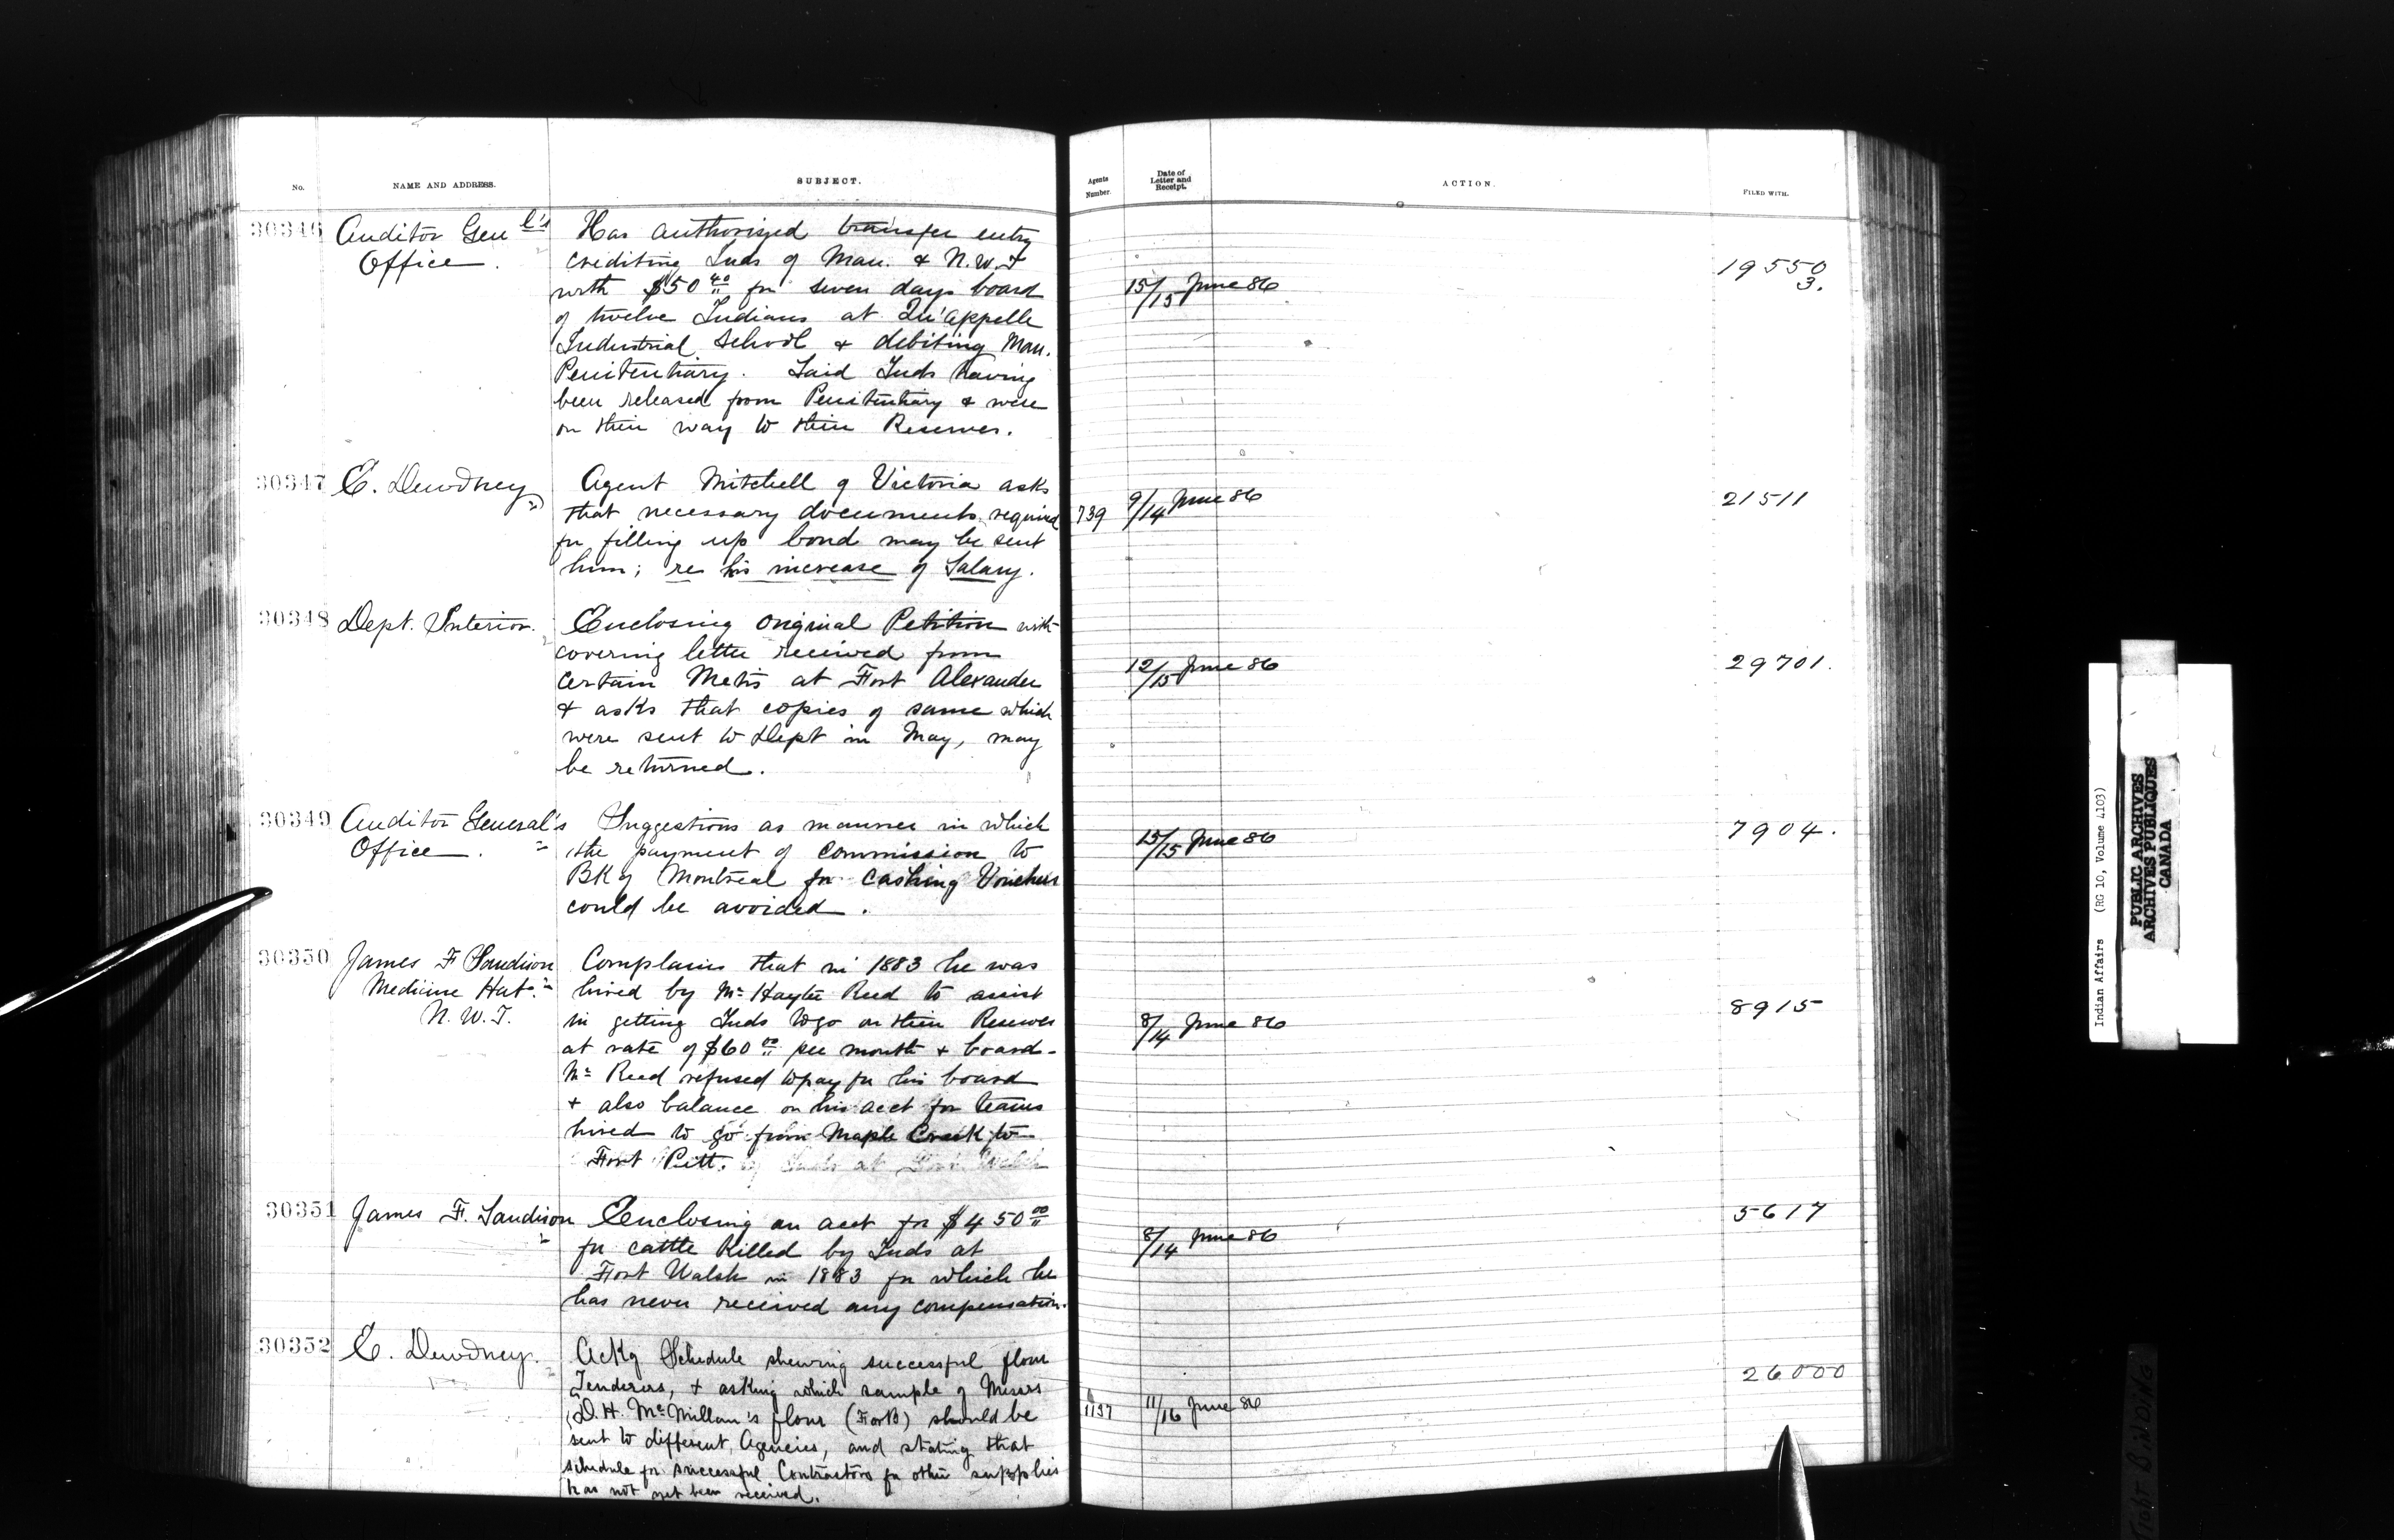 No.
NAME AND ADDRESS.
SUBJECT.
Agents Number.
Date of Letter and Receipt.
ACTION.
FILED WITH.
30346
Auditor Genl's
Office.
Has authorized transfer entry
crediting Inds of Man. & N.W.T
with $50 40 for seven days board
of twelve Indians at Qu'appelle
Industrial School & debiting Man.
Penitentiary. Said Inds having
been released from Penitentiary & were
on their way to their Reserves.
15/15 June 86
19550
3.
30347
E. Dewdney
Agent Mitchell of Victoria asks
that necessary documents required
for filling up bond may be sent
him; re his increase of Salary.
739
9/14 June 86
21511
30348
Dept. Interior.
Enclosing original Petition with
covering letter received from
certain Metis at Fort Alexander
& asks that copies of same which
were sent to Dept in May, may
be returned.
12/15 June 86
29701.
30349
Auditor General's
Office.
Suggestions as manner in which
the payment of commission to
Bk of Montreal for cashing Vouchers
could be avoided.
15/15 June 86
7904.
30350
James F Sandison
Medicine Hat.
N.W.T.
Complains that in 1883 he was
hired by Mr Hayter Reed to assist
in getting Inds to go on their Reserves
at rate of $60 00 per month & board-
Mr Reed refused to pay for his board
& also balance on his acct for teams
hired to go from Maple Creek to
Fort Pitt.
8/14 June 86
8915
30351
James F. Sandison
Enclosing an acct for $450 00
for cattle killed by Inds at
Fort Walsh in 1883 for which he
has never received any compensation.
8/14 June 86
5617
30352
E. Dewdney.
Ackg Schedule shewing successful flour
Tenderers, & asking which sample of Messrs
D.H. McMillan's flour (F or B) should be
sent to different Agencies, and stating that
schedule for successful Contractors for other supplies
has not yet been received.
1137
11/16 June 86
26000
Indian Affairs (RG 10, Volume 1103)
PUBLIC ARCHIVES
ARCHIVES PUBLIQUES
CANADA
TIGHT BINDING